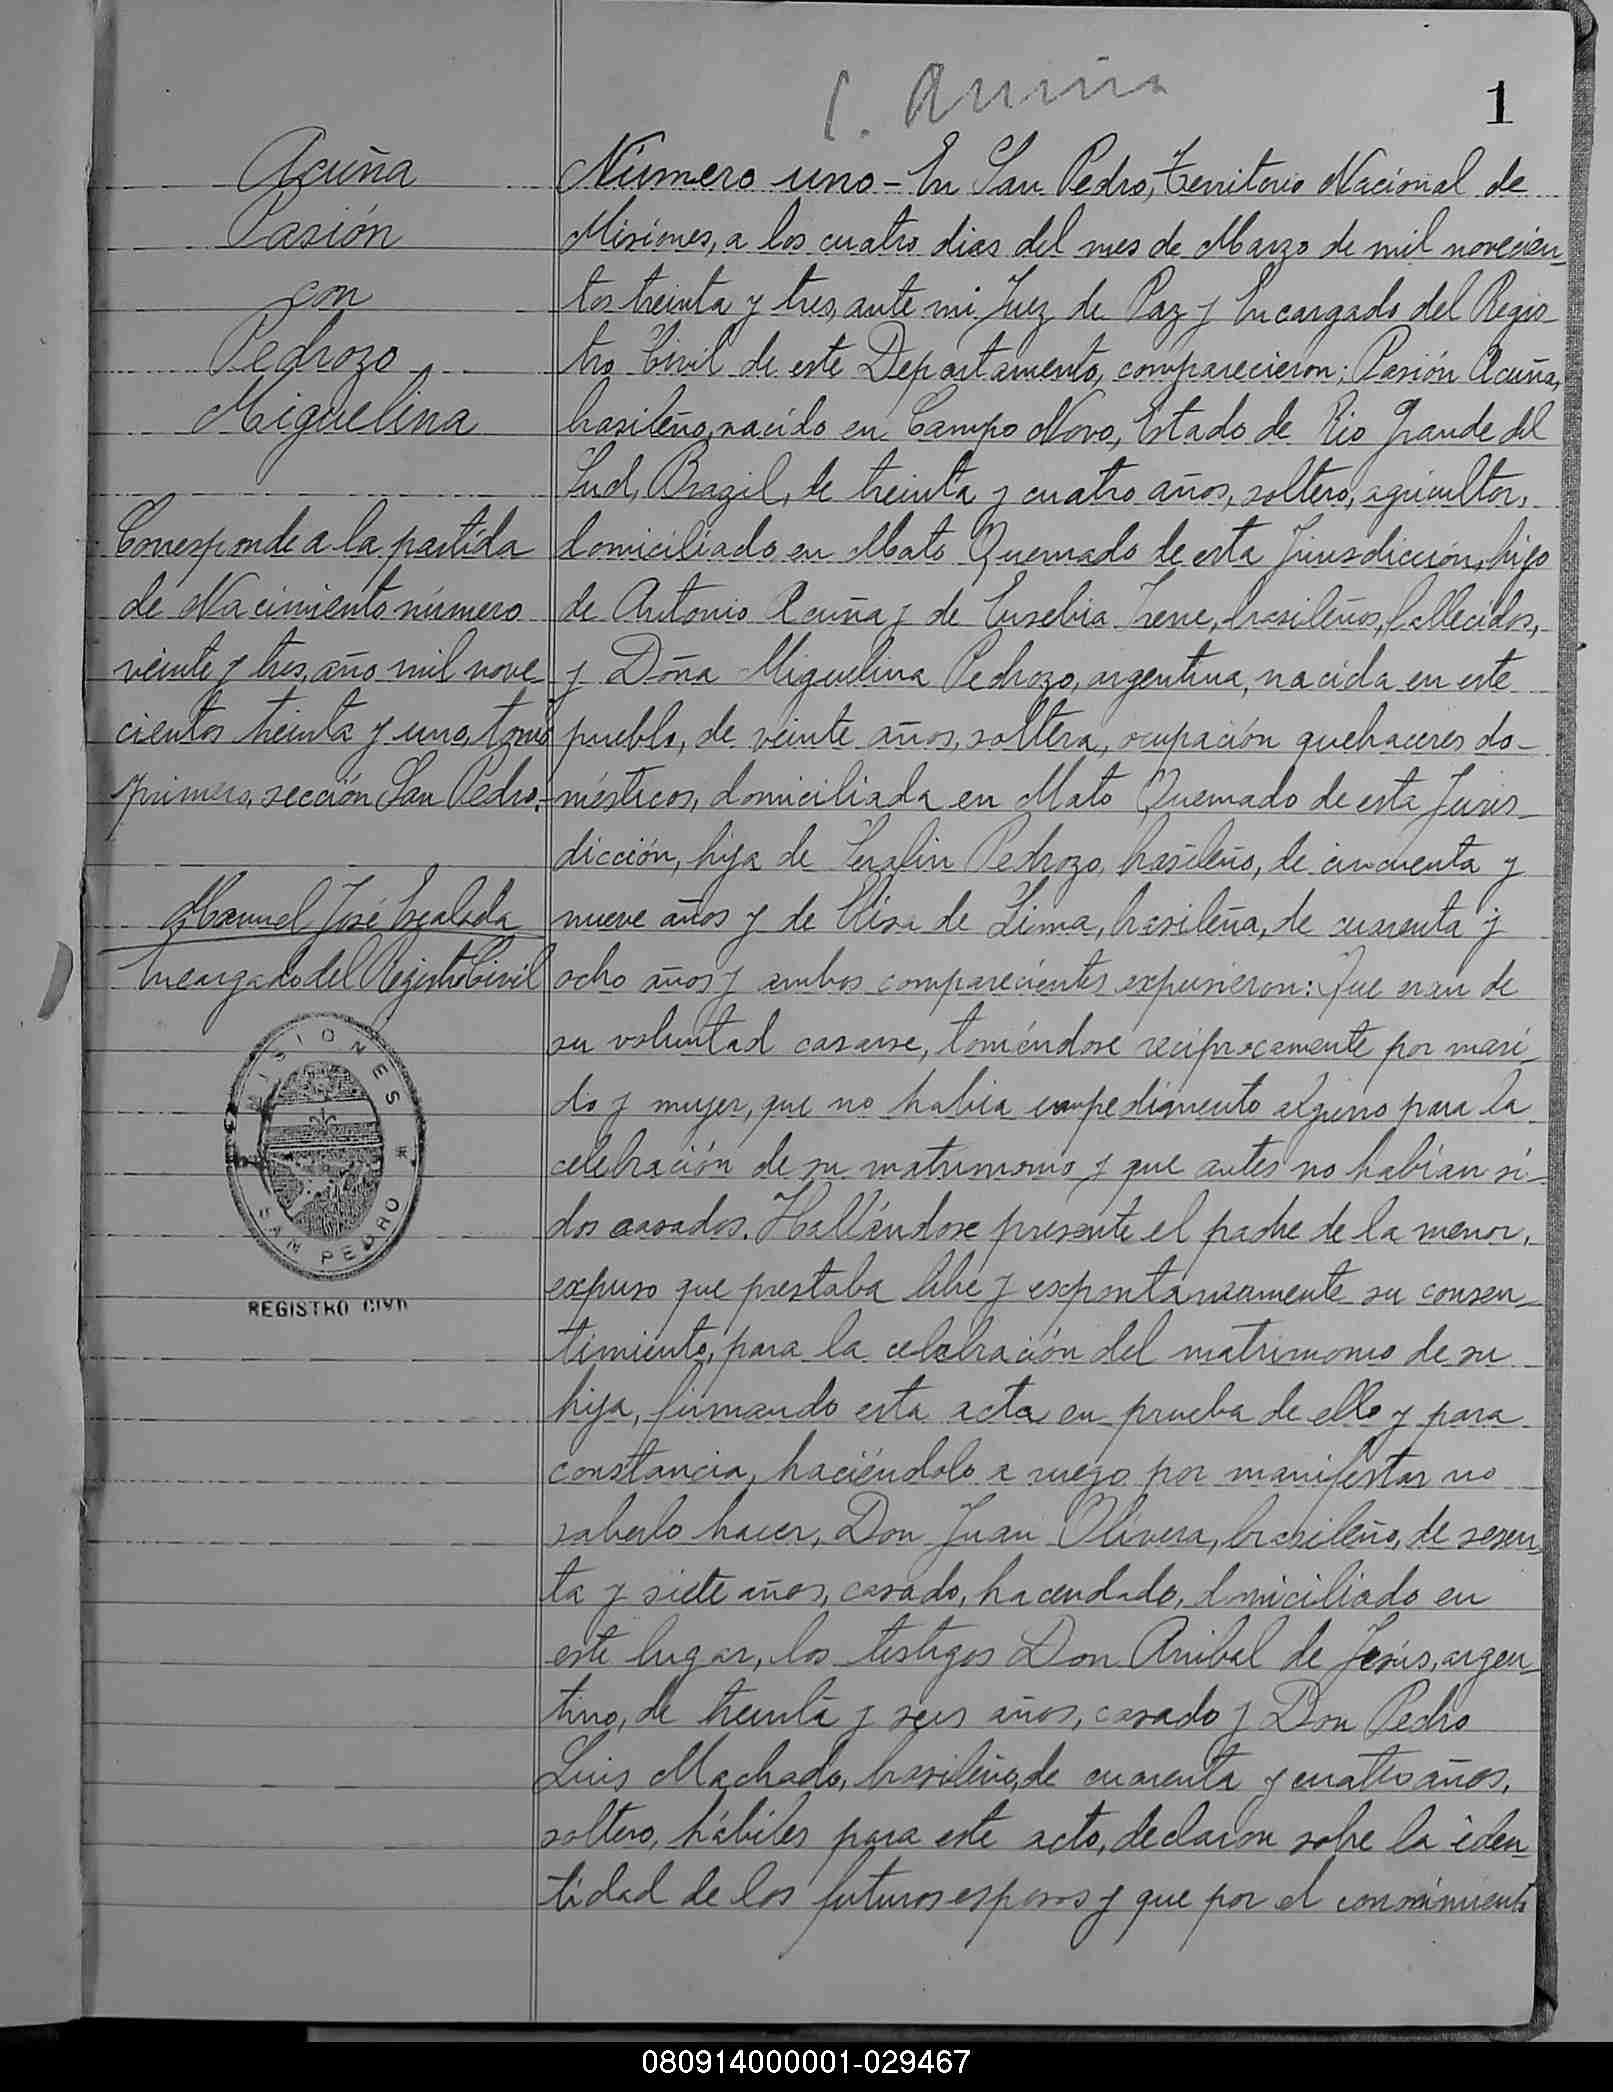 C. Acuña
1
Acuña
Pasión
con
Pedrozo
Miguelina
Corresponde a la partida
de Nacimiento número
veinte y tres, año mil nove
cientos treinta y uno, tomo
primero, sección San Pedro.
Manuel José Escalada
Encargado del Registro Civil
MISIONES
SAN PEDRO
REGISTRO CIVIL
Número uno - En San Pedro, Territorio Nacional de
Misiones, a los cuatro dias del mes de Marzo de mil novecien-
tos treinta y tres, ante mi Juez de Paz y Encargado del Regis-
tro Civil de este Departamento, comparecieron: Pasión Acuña,
brasileño, nacido en Campo Novo, Estado de Rio Grande del
Sud, Brazil, de treinta y cuatro años, soltero, agricultor,
domiciliado en Mato Quemado de esta Jurisdicción, hijo
de Antonio Acuña y de Eusebia Irene, brasileños, fallecidos,
y Doña Miguelina Pedrozo, argentina, nacida en este
pueblo, de veinte años, soltera, ocupación quehaceres do-
mésticos, domiciliada en Mato Quemado de esta Juris-
dicción, hija de Serafin Pedrozo, brasileño, de cincuenta y
nueve años y de Elisa de Lima, brasileña, de cuarenta y
ocho años y ambos comparecientes expusieron: Que eran de
su voluntad casarse, tomándose reciprocamente por mari-
do y mujer, que no habia empedimento alguno para la
celebración de su matrimonio y que antes no habían si-
dos casados. Hallándose presente el padre de la menor,
expuso que prestaba libre y expontaneamente su consen-
timiento, para la celebración del matrimonio de su
hija, firmando esta acta en prueba de ello y para
constancia, haciéndolo a ruego por manifestar no
saberlo hacer, Don Juan Olivera, brasileño, de sesen-
ta y siete años, casado, hacendado, domiciliado en
este lugar, los testigos Don Anibal de Jesús, argen-
tino, de treinta y seis años, casado y Don Pedro
Luis Machado, brasileño, de cuarenta y cuatro años,
soltero, hábiles para este acto, declaron sobre la iden-
tidad de los futuros esposos y que por el conosimiento
080914000001-029467